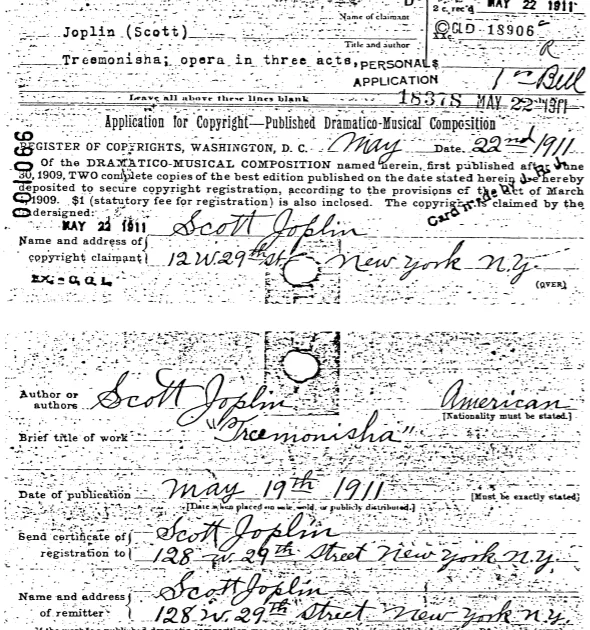 MAY 22 1911
2 c. rec'd
Name of claimant
Joplin (Scott)
© CLD 18906
R
Title and author
Treemonisha; opera in three acts,
PERSONAL
APPLICATION
Leave all above these lines blank
18378 MAY 22 1911
Application for Copyright—Published Dramatico-Musical Composition
REGISTER OF COPYRIGHTS, WASHINGTON, D. C. May Date. 22nd 1911
Of the DRAMATICO-MUSICAL COMPOSITION named herein, first published after June
30, 1909, TWO complete copies of the best edition published on the date stated herein are hereby
deposited to secure copyright registration, according to the provisions of the Act of March
1909. $1 (statutory fee for registration) is also inclosed. The copyright is claimed by the
undersigned:
Card made by
MAY 22 1911
Scott Joplin
Name and address of
copyright claimant
12 W. 29th St. New York N.Y.
(OVER)
Author or
authors
Scott Joplin
American
[Nationality must be stated.]
Brief title of work "Treemonisha"
Date of publication May 19th 1911 [Must be exactly stated]
[Date when placed on sale, sold, or publicly distributed.]
Send certificate of
registration to
Scott Joplin
128 W. 29th Street New York N.Y.
Name and address
of remitter
Scott Joplin
128 W. 29th Street New York N.Y.